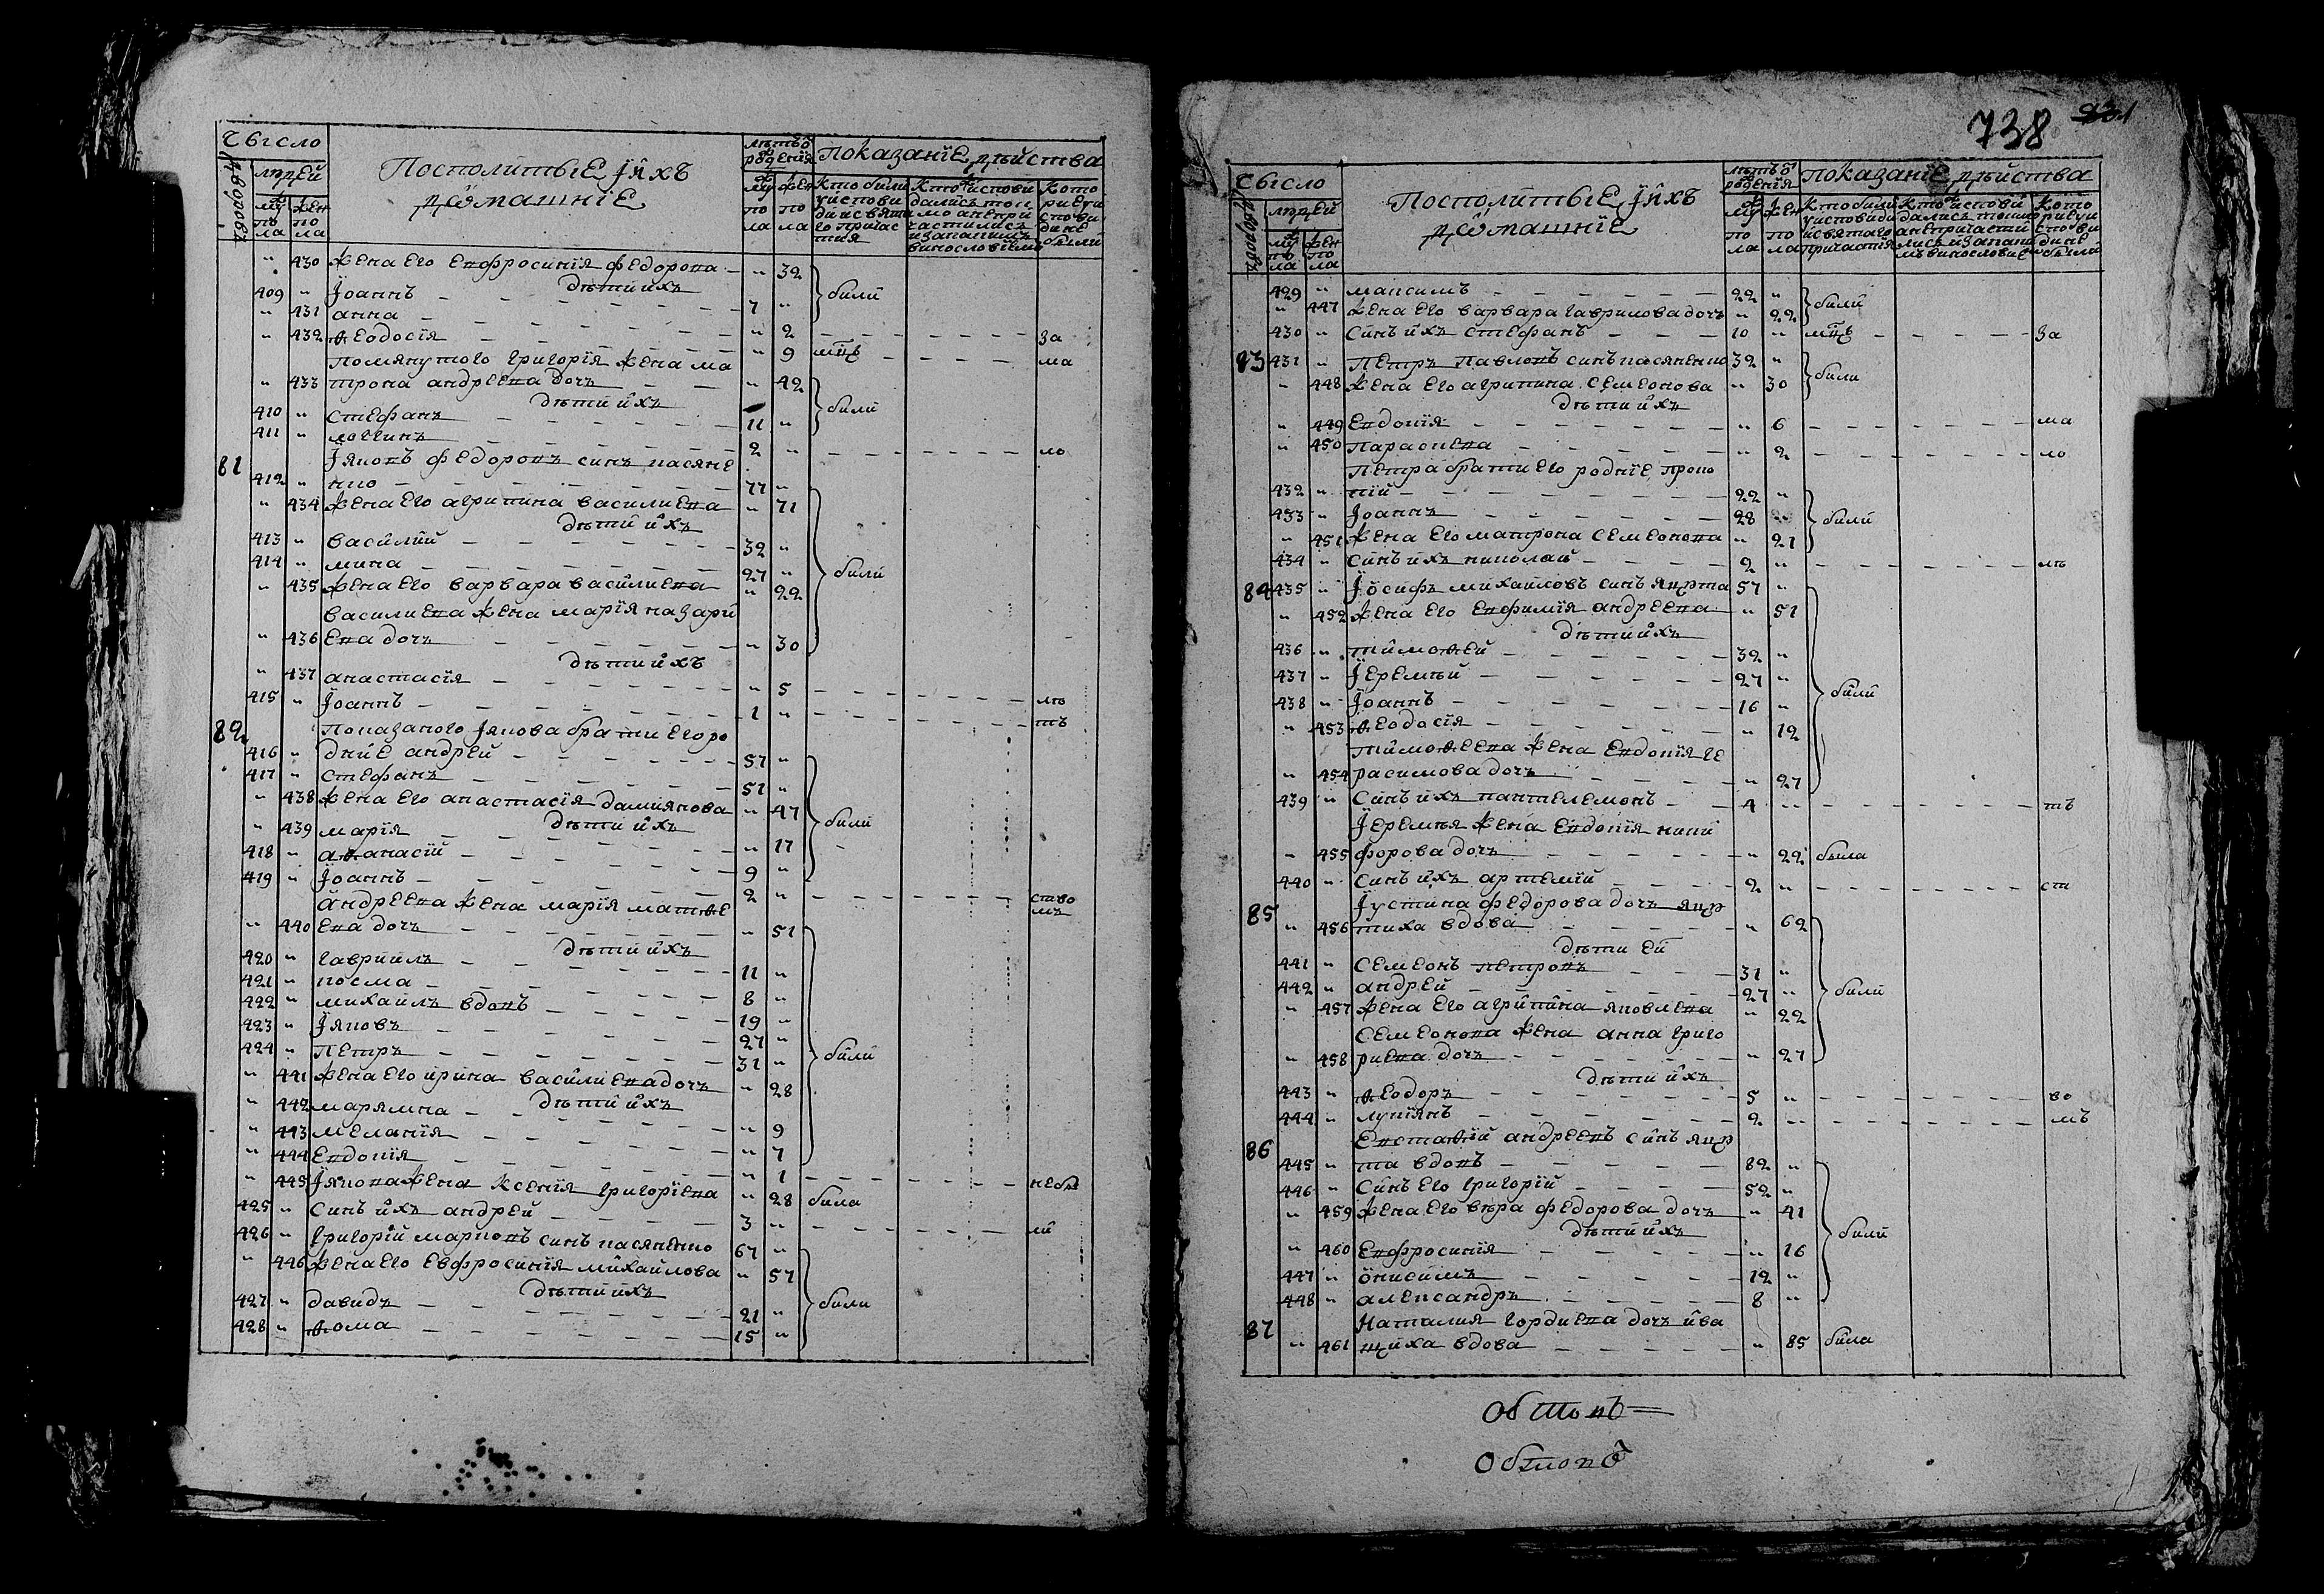 Число
дворовъ
людей
муж пола
жен пола
Посполитые їихъ
домашніе
лѣтъ ѿ рожденія
муж пола
жен пола
Показаніе дѣйства
Кто были у исповиди и святаго причастия
Кто исповидались толко а не причастились и за какимъ винословіемъ
Которие у исповиди не были
" 430 Жена его Евфросинія Федорова " 32
дѣти ихъ
409 " Їоаннъ 7 " } били
" 431 анна " 2 за
" 432 Ѳеодосія " 9 ма
Помянутого григорія жена ма
" 433 трона андреева дочъ " 42
дѣти ихъ } били
410 " стефанъ 11 "
411 " логгинъ 2 " ло
81 Їяковъ федоровъ синъ касяне
412 " нко 77 "
" 434 жена его агрипина василиева " 71
дѣти ихъ
413 " василий 32 "
414 " мина 27 " } били
" 435 жена его варвара василиева " 22
василиева жена марїя назари
" 436 ева дочъ " 30
дѣти ихъ
" 437 анастасїя " 5 лѣ
415 " Їоаннъ 1 " тъ
82 Показаного Їякова брати его ро
416 " дние андрей 57 "
417 " стефанъ 51 "
" 438 жена его анастасїя дамиянова " 47
дѣти ихъ } били
" 439 марїя " 17
418 " аѳанасїй 9 "
419 " Їоаннъ 2 " ство мъ
андреева жена марїя матѳе
" 440 ева дочъ " 51
дѣти ихъ
420 " гаврїилъ 11 "
421 " косма 8 "
422 " михаилъ вдовъ 19 "
423 " Їяковъ 27 "
424 " петръ 31 " } били
" 441 жена его ирина василиева дочъ " 28
дѣти ихъ
" 442 марямна " 9
" 443 меланїя " 7
" 444 Евдокїя " 1 небы
" 445 Їякова жена Ксенїя григорїева " 28 била
425 " синъ ихъ андрей 3 " ли
426 " григорїй марковъ синъ касяненко 67 "
" 446 жена его Евфросинїя михайлова " 57
дѣти ихъ } били
427 " давидъ 21 "
428 " Ѳома 15 "
738
Число
дворовъ
людей
муж пола
жен пола
Посполитые їихъ
домашнїе
лѣтъ ѿ рожденїя
муж пола
жен пола
Показанїе дѣйства
Кто били у исповиди и святаго причастїя
Кто исповидались толко а не причастились и за каким винословие
Которие у исповиди не были
429 " максимъ 22 "
" 447 жена его варвара гаврилова дочъ " 22 } били
430 " синъ ихъ стефанъ 10 " за
83 431 " Петръ Павловъ синъ касяненко 32 "
" 448 жена его агрипина семенова " 30 } били
дѣти ихъ
" 449 Евдокїя " 6 ма
" 450 параскева " 2 ло
петра брати его роднїе, проко
432 " пїй 22 "
433 " Їоаннъ 28 " } били
" 451 жена его матрона семенова " 21
434 " синъ ихъ николай 2 " лѣ
84 435 " Їосифъ михайловъ синъ яхрта 57 "
" 452 жена его Евфимїя андреева " 51
дѣти ихъ
436 " тимоѳей 32 "
437 " Їеремѣй 27 "
438 " Їоаннъ 16 " } били
" 453 Ѳеодосїя " 12
тимоѳеева жена Евдокїя ге
" 454 расимова дочъ " 27
439 " синъ ихъ пантелемонъ 4 " тъ
Їеремѣя жена Евдокїя ники
" 455 форова дочъ " 22 была
440 " синъ ихъ артемїй 2 " ст
85 Їустина федорова дочъ яхр
" 456 тиха вдова " 62
дѣти ей
441 " семенъ петровъ 31 "
442 " андрей 27 " } били
" 457 жена его агрипина яковлева " 22
семенова жена анна григо
" 458 риева дочъ " 27
дѣти ихъ
443 " Ѳеодоръ 5 " во
444 " лукїянъ 2 " мъ
86 Евстаѳїй андреевъ синъ яхр
445 " та вдовъ 82 "
446 " синъ его григорїй 52 "
" 459 жена его вѣра федорова дочъ " 41
дѣти ихъ } били
" 460 Евфросинїя " 16
447 " онисимъ 12 "
448 " александръ 8 "
87 Наталия гордиева дочъ ива
" 461 щиха вдова " 85 била